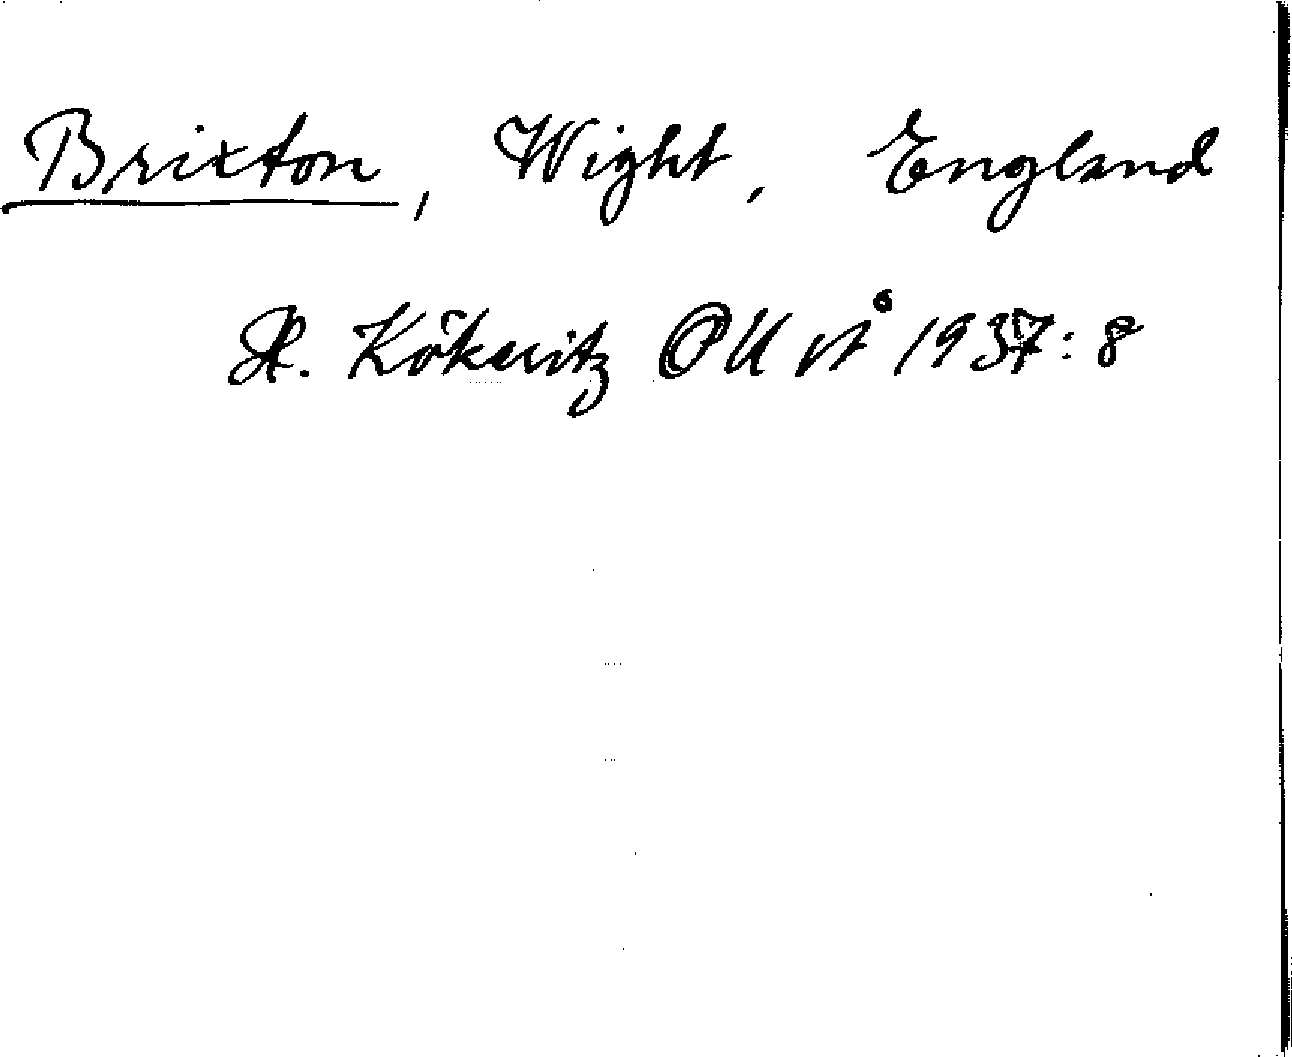 Brixton, Wight, England
H. Kökeritz OUÅ 1937: 8